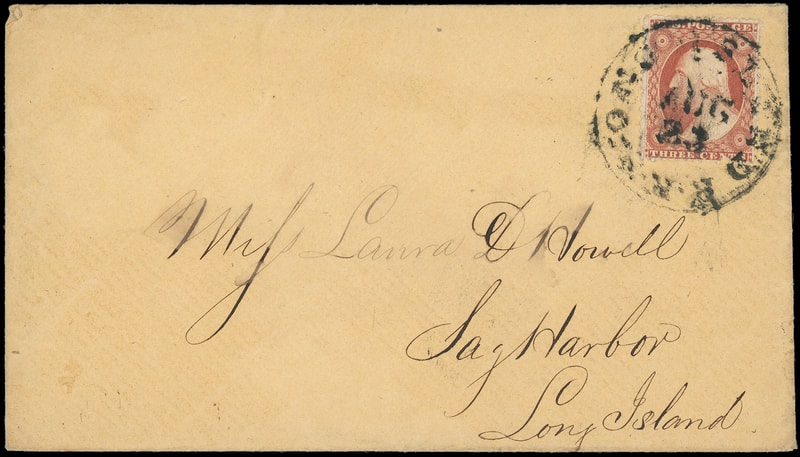 U.S. POSTAGE
LONG ISLAND R.R.
AUG
23
THREE CENTS
Miss Laura D Howell
Sag Harbor
Long Island.